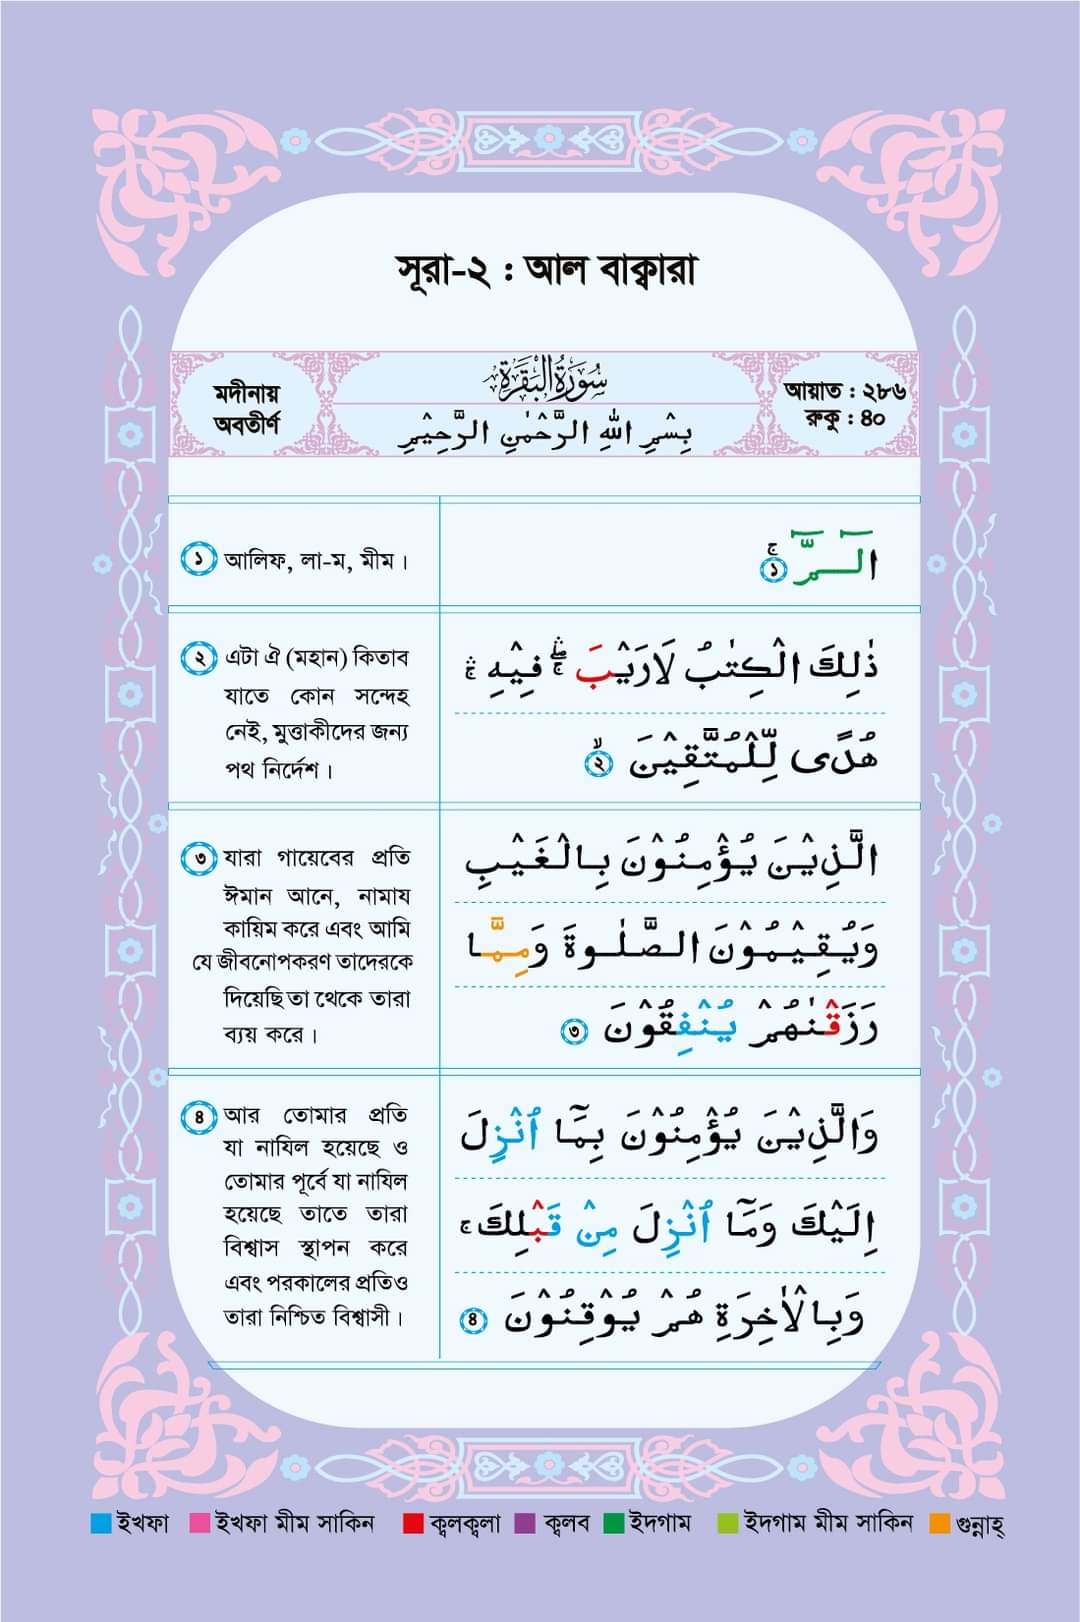 সূরা-২ : আল বাক্বারা
মদীনায়
অবতীর্ণ
سُورَةُ الْبَقَرَة
بِسْمِ اللّٰهِ الرَّحْمٰنِ الرَّحِيْمِ
আয়াত : ২৮৬
রুকু : ৪০
১ আলিফ, লা-ম, মীম।
الٓـمّٓ ۚ ১
২ এটা ঐ (মহান) কিতাব
যাতে কোন সন্দেহ
নেই, মুত্তাকীদের জন্য
পথ নির্দেশ।
ذٰلِكَ الْكِتٰبُ لَارَيْبَ ۛۖۚ فِيْهِ ۛۚ
هُدًى لِّلْمُتَّقِيْنَ ۙ ২
৩ যারা গায়েবের প্রতি
ঈমান আনে, নামায
কায়িম করে এবং আমি
যে জীবনোপকরণ তাদেরকে
দিয়েছি তা থেকে তারা
ব্যয় করে।
الَّذِيْنَ يُؤْمِنُوْنَ بِالْغَيْبِ
وَيُقِيْمُوْنَ الصَّلٰوةَ وَمِمَّا
رَزَقْنٰهُمْ يُنْفِقُوْنَ ৩
৪ আর তোমার প্রতি
যা নাযিল হয়েছে ও
তোমার পূর্বে যা নাযিল
হয়েছে তাতে তারা
বিশ্বাস স্থাপন করে
এবং পরকালের প্রতিও
তারা নিশ্চিত বিশ্বাসী।
وَالَّذِيْنَ يُؤْمِنُوْنَ بِمَآ اُنْزِلَ
اِلَيْكَ وَمَآ اُنْزِلَ مِنْ قَبْلِكَ ۚ
وَبِالْاٰخِرَةِ هُمْ يُوْقِنُوْنَ ৪
ইখফা ইখফা মীম সাকিন ক্বলক্বলা ক্বলব ইদগাম ইদগাম মীম সাকিন গুন্নাহ্